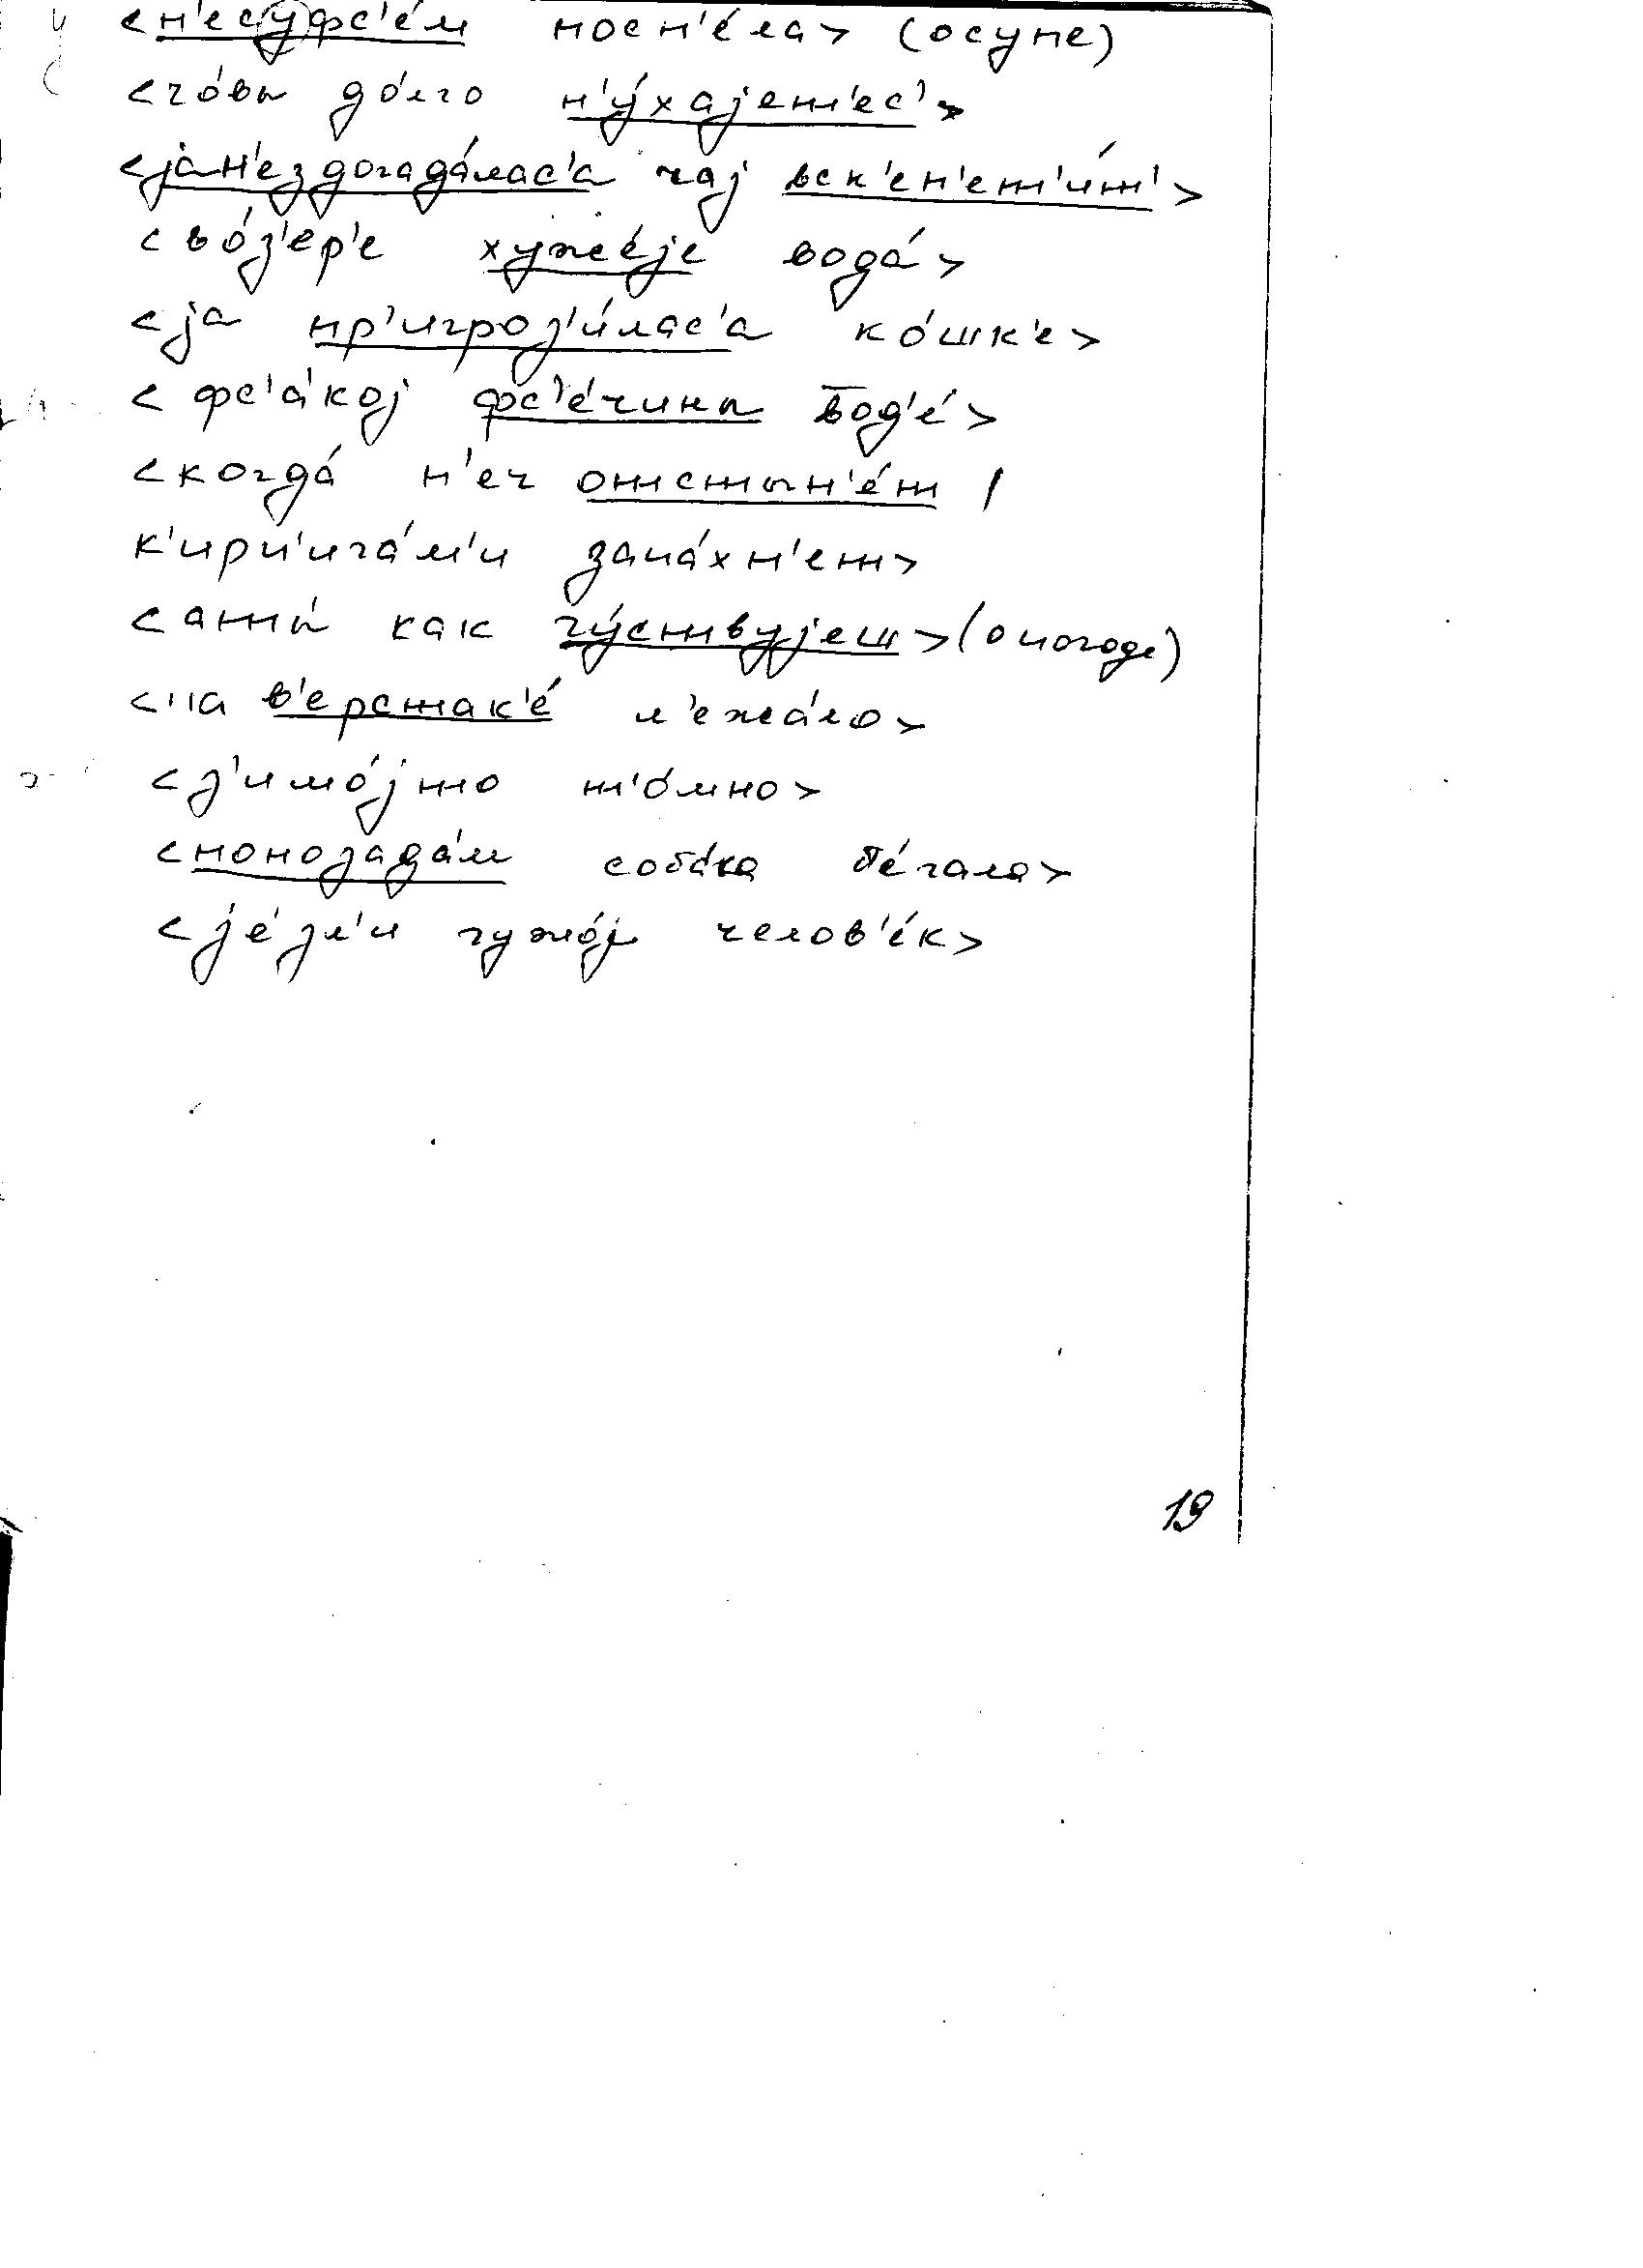 <н'есуфс'е́м посп'е́ла> (о супе)
<что́вы до́лго н'у́хајет'ес'>
<јан'ездогада́лас'а чај вск'ен'ет'и́т'>
<во́з'ер'е хуже́је вода́>
<ја пр'игроз'и́лас'а ко́шк'е>
<фс'а́кој фс'е́чины вод'е́>
<когда́ п'еч отстын'е́т /
к'ирп'ича́м'и запа́хн'ет>
<аты́ как чу́ствујеш> (о погоде)
<на в'ерстак'е́ л'ежа́ло>
<з'имо́јто т'о́мно>
<понозада́м соба́ка бе́гала>
<је́зл'и чужо́ј челов'е́к>
19